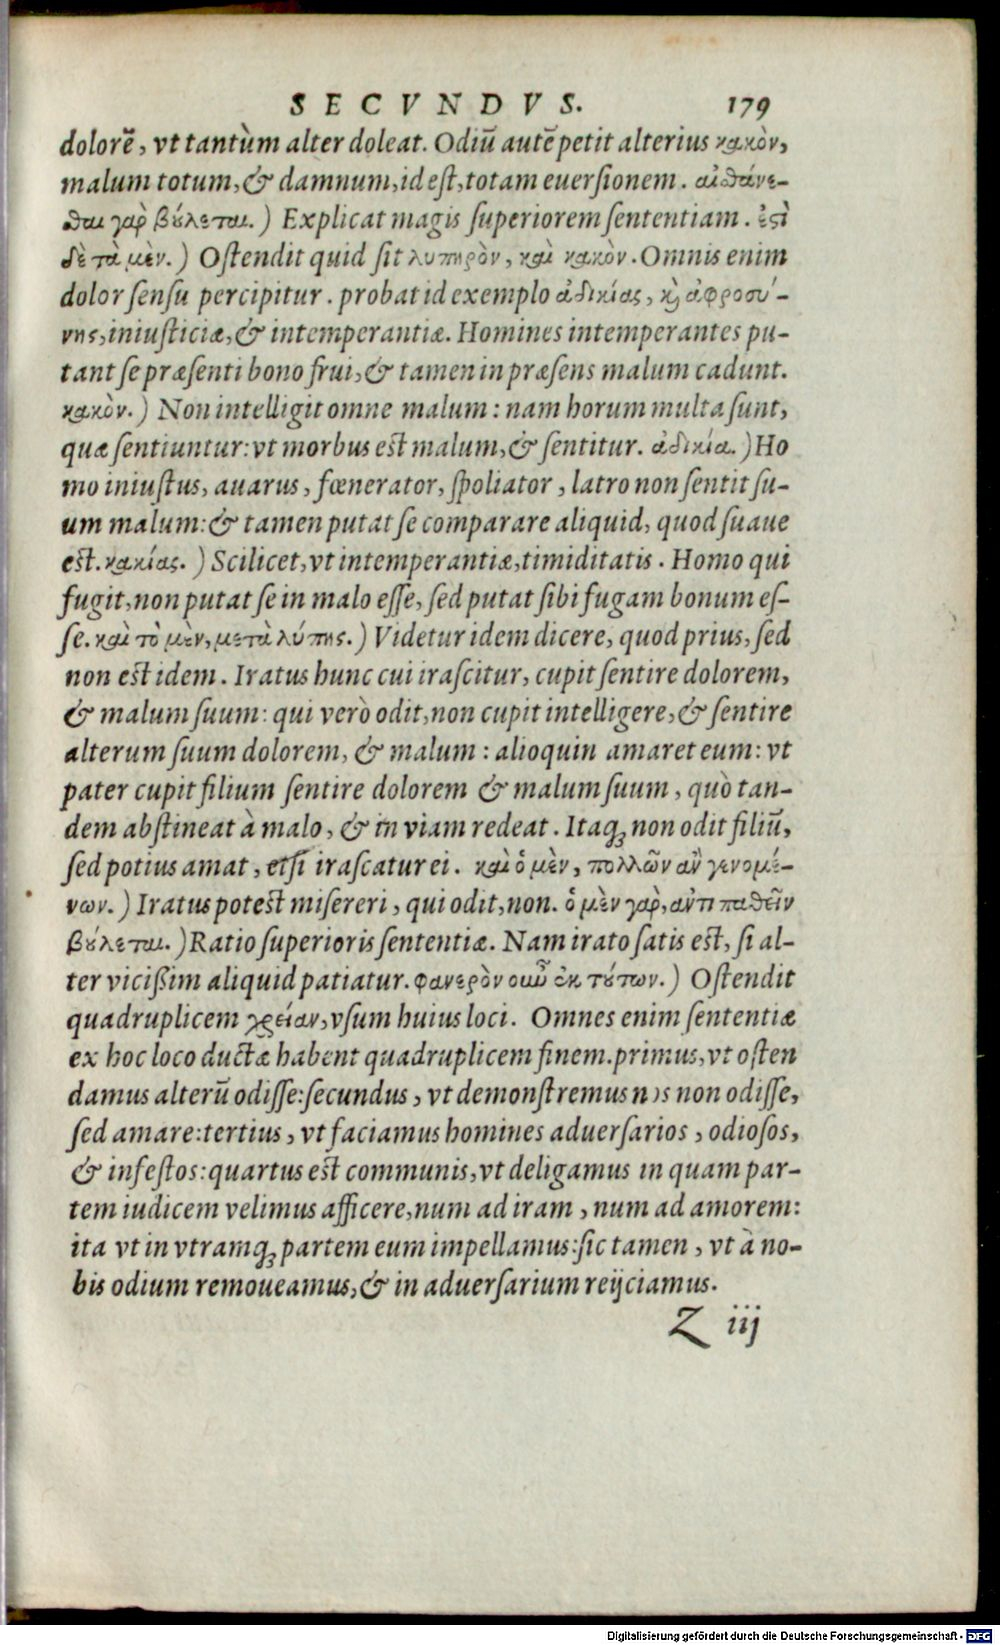 SECVNDVS. 179
dolorē, vt tantùm alter doleat. Odiū autē petit alterius κακὸν,
malum totum, & damnum, id est, totam euersionem. αἰσθάνε-
σθαι γαρ̀ βύλεται.) Explicat magis superiorem sententiam. ἐστὶ
δὲ τὰ μὲν.) Ostendit quid sit λυπηρὸν, καὶ κακὸν. Omnis enim
dolor sensu percipitur. probat id exemplo ἀδικίας, κ̀ ἀφροσύ-
νης, iniusticiæ, & intemperantiæ. Homines intemperantes pu-
tant se præsenti bono frui, & tamen in præsens malum cadunt.
κακὸν.) Non intelligit omne malum: nam horum multa sunt,
quæ sentiuntur: vt morbus est malum, & sentitur. ἀδικία.) Ho
mo iniustus, auarus, fœnerator, spoliator, latro non sentit su-
um malum: & tamen putat se comparare aliquid, quod suaue
est. κακίας.) Scilicet, vt intemperantiæ, timiditatis. Homo qui
fugit, non putat se in malo esse, sed putat sibi fugam bonum es-
se. καὶ τὸ μὲν, μετὰ λύπης.) Videtur idem dicere, quod prius, sed
non est idem. Iratus hunc cui irascitur, cupit sentire dolorem,
& malum suum: qui verò odit, non cupit intelligere, & sentire
alterum suum dolorem, & malum: alioquin amaret eum: vt
pater cupit filium sentire dolorem & malum suum, quò tan-
dem abstineat à malo, & in viam redeat. Itaq; non odit filiū,
sed potius amat, etsi irascatur ei. καὶ ὁ μὲν, πολλῶν ἂν γενομέ-
νων.) Iratus potest misereri, qui odit, non. ὁ μὲν γαρ̀, ἀντιπαθεῖν
βύλεται.) Ratio superioris sententiæ. Nam irato satis est, si al-
ter vicißim aliquid patiatur. φανερὸν οὖν ἐκ τύτων.) Ostendit
quadruplicem χρείαν, vsum huius loci. Omnes enim sententiæ
ex hoc loco ductæ habent quadruplicem finem. primus, vt osten
damus alterū odisse: secundus, vt demonstremus nos non odisse,
sed amare: tertius, vt faciamus homines aduersarios, odiosos,
& infestos: quartus est communis, vt deligamus in quam par-
tem iudicem velimus afficere, num ad iram, num ad amorem:
ita vt in vtramq; partem eum impellamus: sic tamen, vt à no-
bis odium remoueamus, & in aduersarium reijciamus.
Z iij
Digitalisierung gefördert durch die Deutsche Forschungsgemeinschaft - DFG